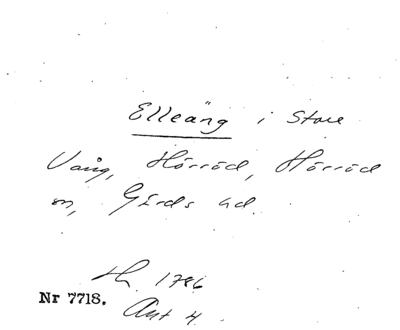 Elleäng i Store
Vång, Hörröd, Hörröd
sn, Gärds hd.
Lh. 1786
Nr 7718.
Akt 4